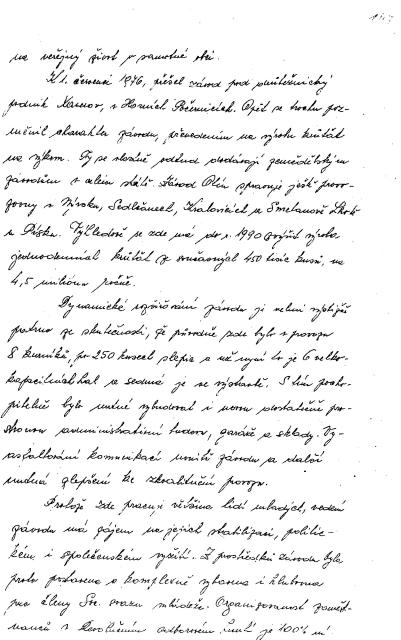 na veřejný život v samotné obci.
K 1. červenci 1976, přešel závod pod
podnik Xaverov, v Horních Počernicích. Opět se trochu poz-
měnil charakter závodu, převedením na výrobu krůťat
na výkrm. Ty se odtud dodávají zemědělským
závodům v celém státě. Závod Olšin spravuje ještě provo-
zovny v Nýrsku, Sedlčanech, Kralovicích a Smetanově Lhotě
u Písku. Výhledově se zde má do r. 1990 zvýšit výroba
jednodenních krůťat ze současných 450 tisíc kusů, na
4,5 milionu ročně.
Dynamické rozšiřování závodu je velmi
patrno ze skutečnosti, že původně zde bylo v provozu
8 kurníků, po 250 kusech slepic a už nyní to je 6 velko-
kapacitních hal a sedmá je ve výstavbě. S tím pocho-
pitelně bylo nutné vybudovat i novou dostatečně pro-
stornou administrativní budovu, garáže a sklady. Vy-
asfaltování komunikací uvnitř závodu a další
nutná zlepšení ke zkvalitnění provozu.
Protože zde pracuje většina lidí mladých, vedení
závodu má zájem na jejich stabilizaci, politic-
kém i společenském vyžití. Z prostředků závodu byla
proto postavena a komplexně vybavena i klubovna
pro členy Soc. svazu mládeže. Organizovanost zaměst-
nanců v Revolučním odborovém hnutí je 100% ní